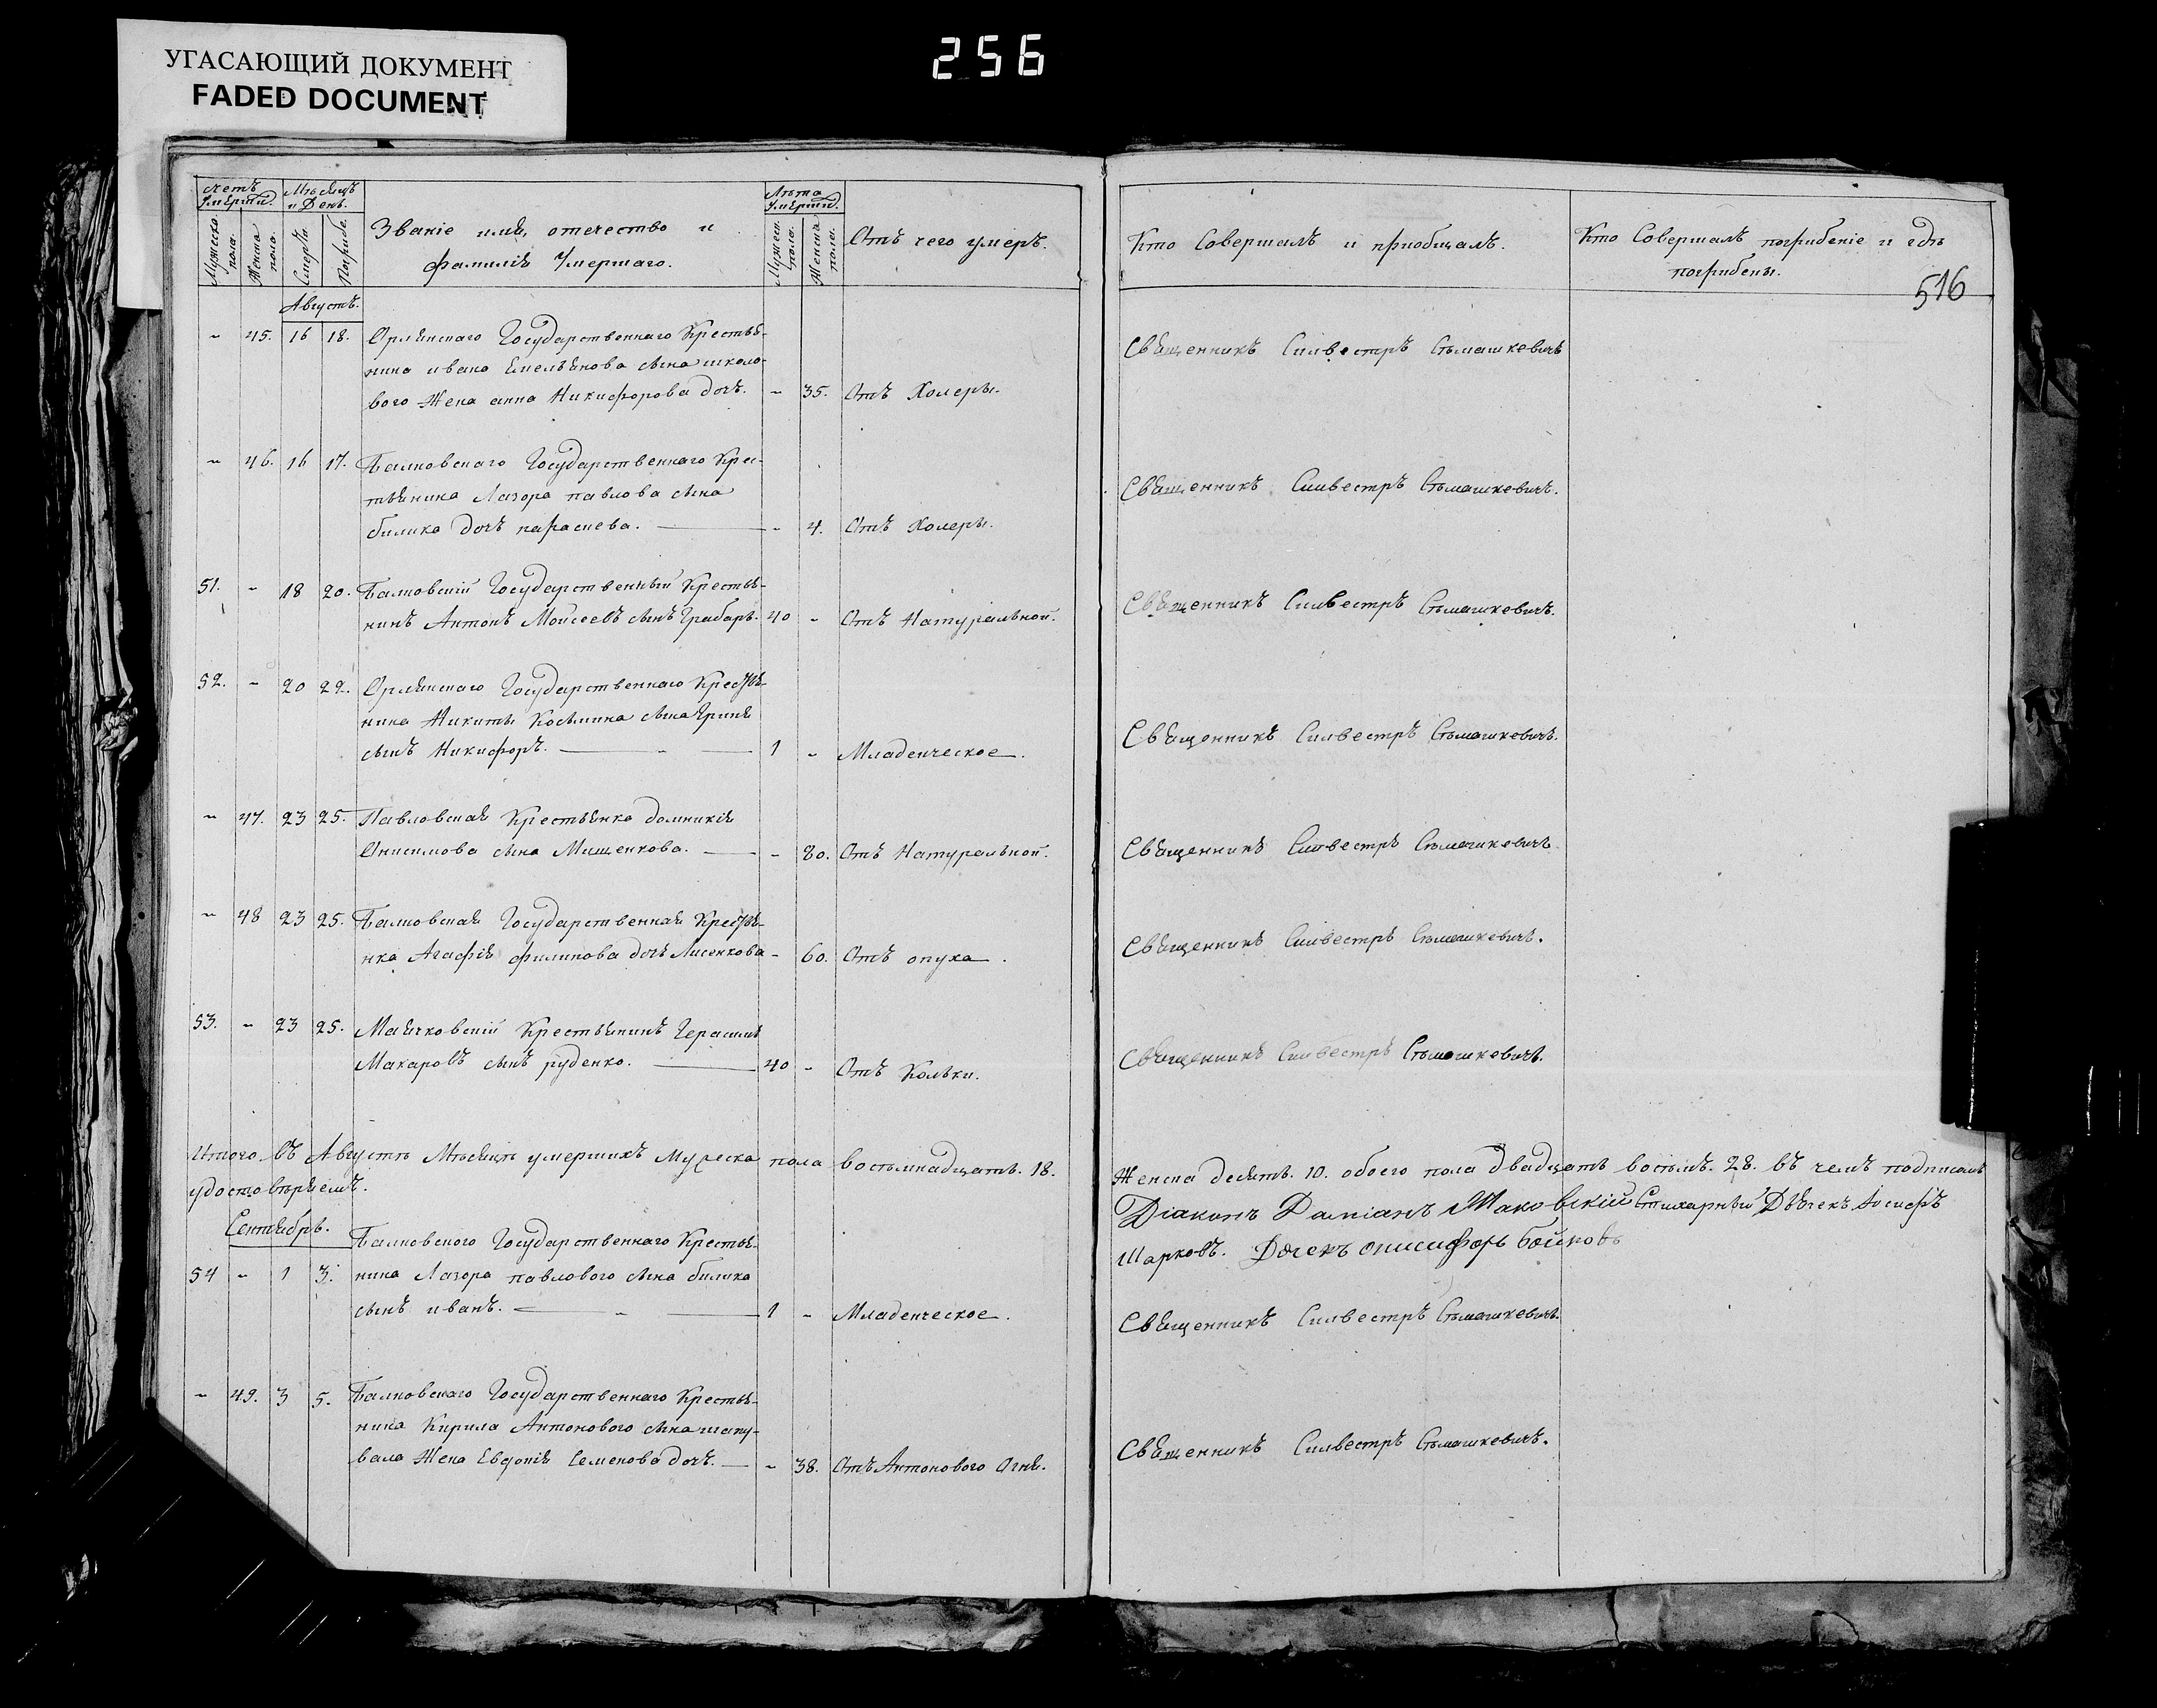 УГАСАЮЩИЙ ДОКУМЕНТ
FADED DOCUMENT
256
516
Счетъ Умерши.
Мѣсяцъ и День.
Званіе имя, отечество и
фамилія Умершаго.
Лѣта Умерши.
Отъ чего умеръ.
Мужеска пола.
Женска пола.
Смерти
Погребе.
Мужеск. пола.
Женска пола.
Кто Совершалъ и приобщалъ.
Кто Совершалъ погребеніе и гдѣ
погребены.
Августъ.
- 45. 16 18. Орлянскаго Государственнаго Крестья-
нина ивана Емельянова сына школо-
вого Жена анна Никифорова дочъ. - 35. Отъ Холеры.
Священникъ Силвестръ Сѣмашкевичъ
- 46. 16 17. Балковскаго Государственнаго Крес-
тьянина Лазора павлова сына
билика дочъ параскева. - 4. Отъ Холеры.
Священникъ Силвестръ Сѣмашкевичъ.
51. - 18 20. Балковскій Государственный Крестья-
нинъ Антонъ Мойсеевъ сынъ Грабаръ. 40 - Отъ Натуральной.
Священникъ Силвестръ Сѣмашкевичъ.
52. - 20 22. Орлянскаго Государственнаго Крестья-
нина Никиты Косьмина сына
сынъ Никифоръ. 1 - Младенческое.
Священникъ Силвестръ Сѣмашкевичъ.
- 47. 23 25. Павловская Крестьянка домникія
Онисимова сына Мищенкова. - 80. Отъ Натуральной.
Священникъ Силвестръ Сѣмашкевичъ
- 48 23 25. Балковская Государственная Крестья-
нка Агафія филипова дочъ Лисенкова - 60. Отъ опуха.
Священникъ Силвестръ Сѣмашкевичъ.
53. - 23 25. Маячковскій Крестьянинъ Герасимъ
Макаровъ сынъ руденко. 40 - Отъ Кольки.
Священникъ Силвестръ Сѣмашкевичъ.
Итого въ Августѣ Мѣсяцѣ умершихъ Мужеска пола восьмнадцать. 18.
Женска десять. 10. обоего пола двадцать восьмъ. 28. въ чемъ подписомъ
удостовѣряемъ.
Діаконъ Даміанъ Маковскій Стихарный Дьячекъ Іосифъ
Шарковъ. Дячекъ онисифоръ бойковъ
Сентябрь.
Балковского Государственнаго Крестья-
54 - 1 3. нина Лазора павлового сына билика
сынъ иванъ. 1 - Младенческое.
Священникъ Силвестръ Сѣмашкевичъ.
- 49. 3 5. Балковскаго Государственнаго Крестья-
нина Кирила Антонового сына шапу-
вала Жена Евдокія Семенова дочъ. - 38. Отъ Антонового Огня.
Священникъ Силвестръ Сѣмашкевичъ.